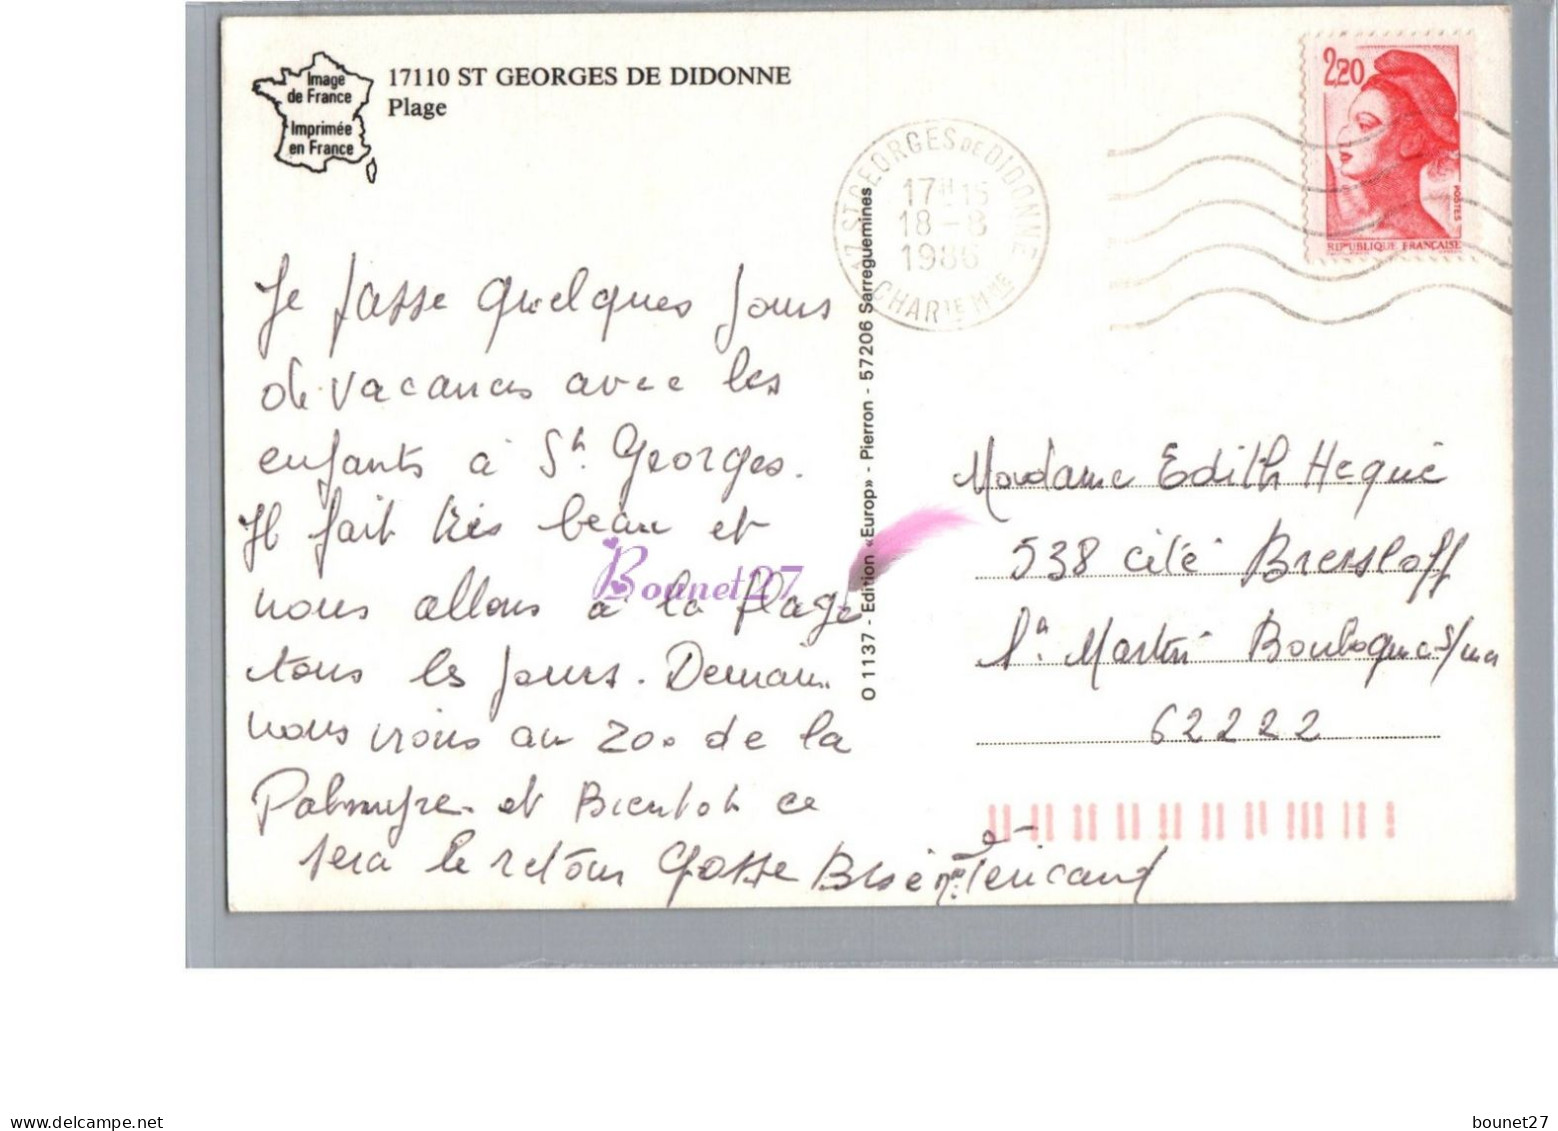 Image
de France
Imprimée
en France
17110 ST GEORGES DE DIDONNE
Plage
2,20
POSTES
REPUBLIQUE FRANÇAISE
17 ST GEORGES DE DIDONNE
17H15
18-8
1986
CHARTE MME
Je passe quelques jours
de vacances avec les
enfants à St. Georges.
Il fait très beau et
nous allons à la plage
tous les jours. Demain
nous irons au zoo de la
Palmyre. et Bientot ce
sera le retour Grosse Bise
O 1137 - Edition «Europ» - Pierron - 57206 Sarreguemines
Bounet27
Madame Edith Hequé
538 cité Bressloff
St Martin Boulogne s/mer
62222
delcampe.net
bounet27